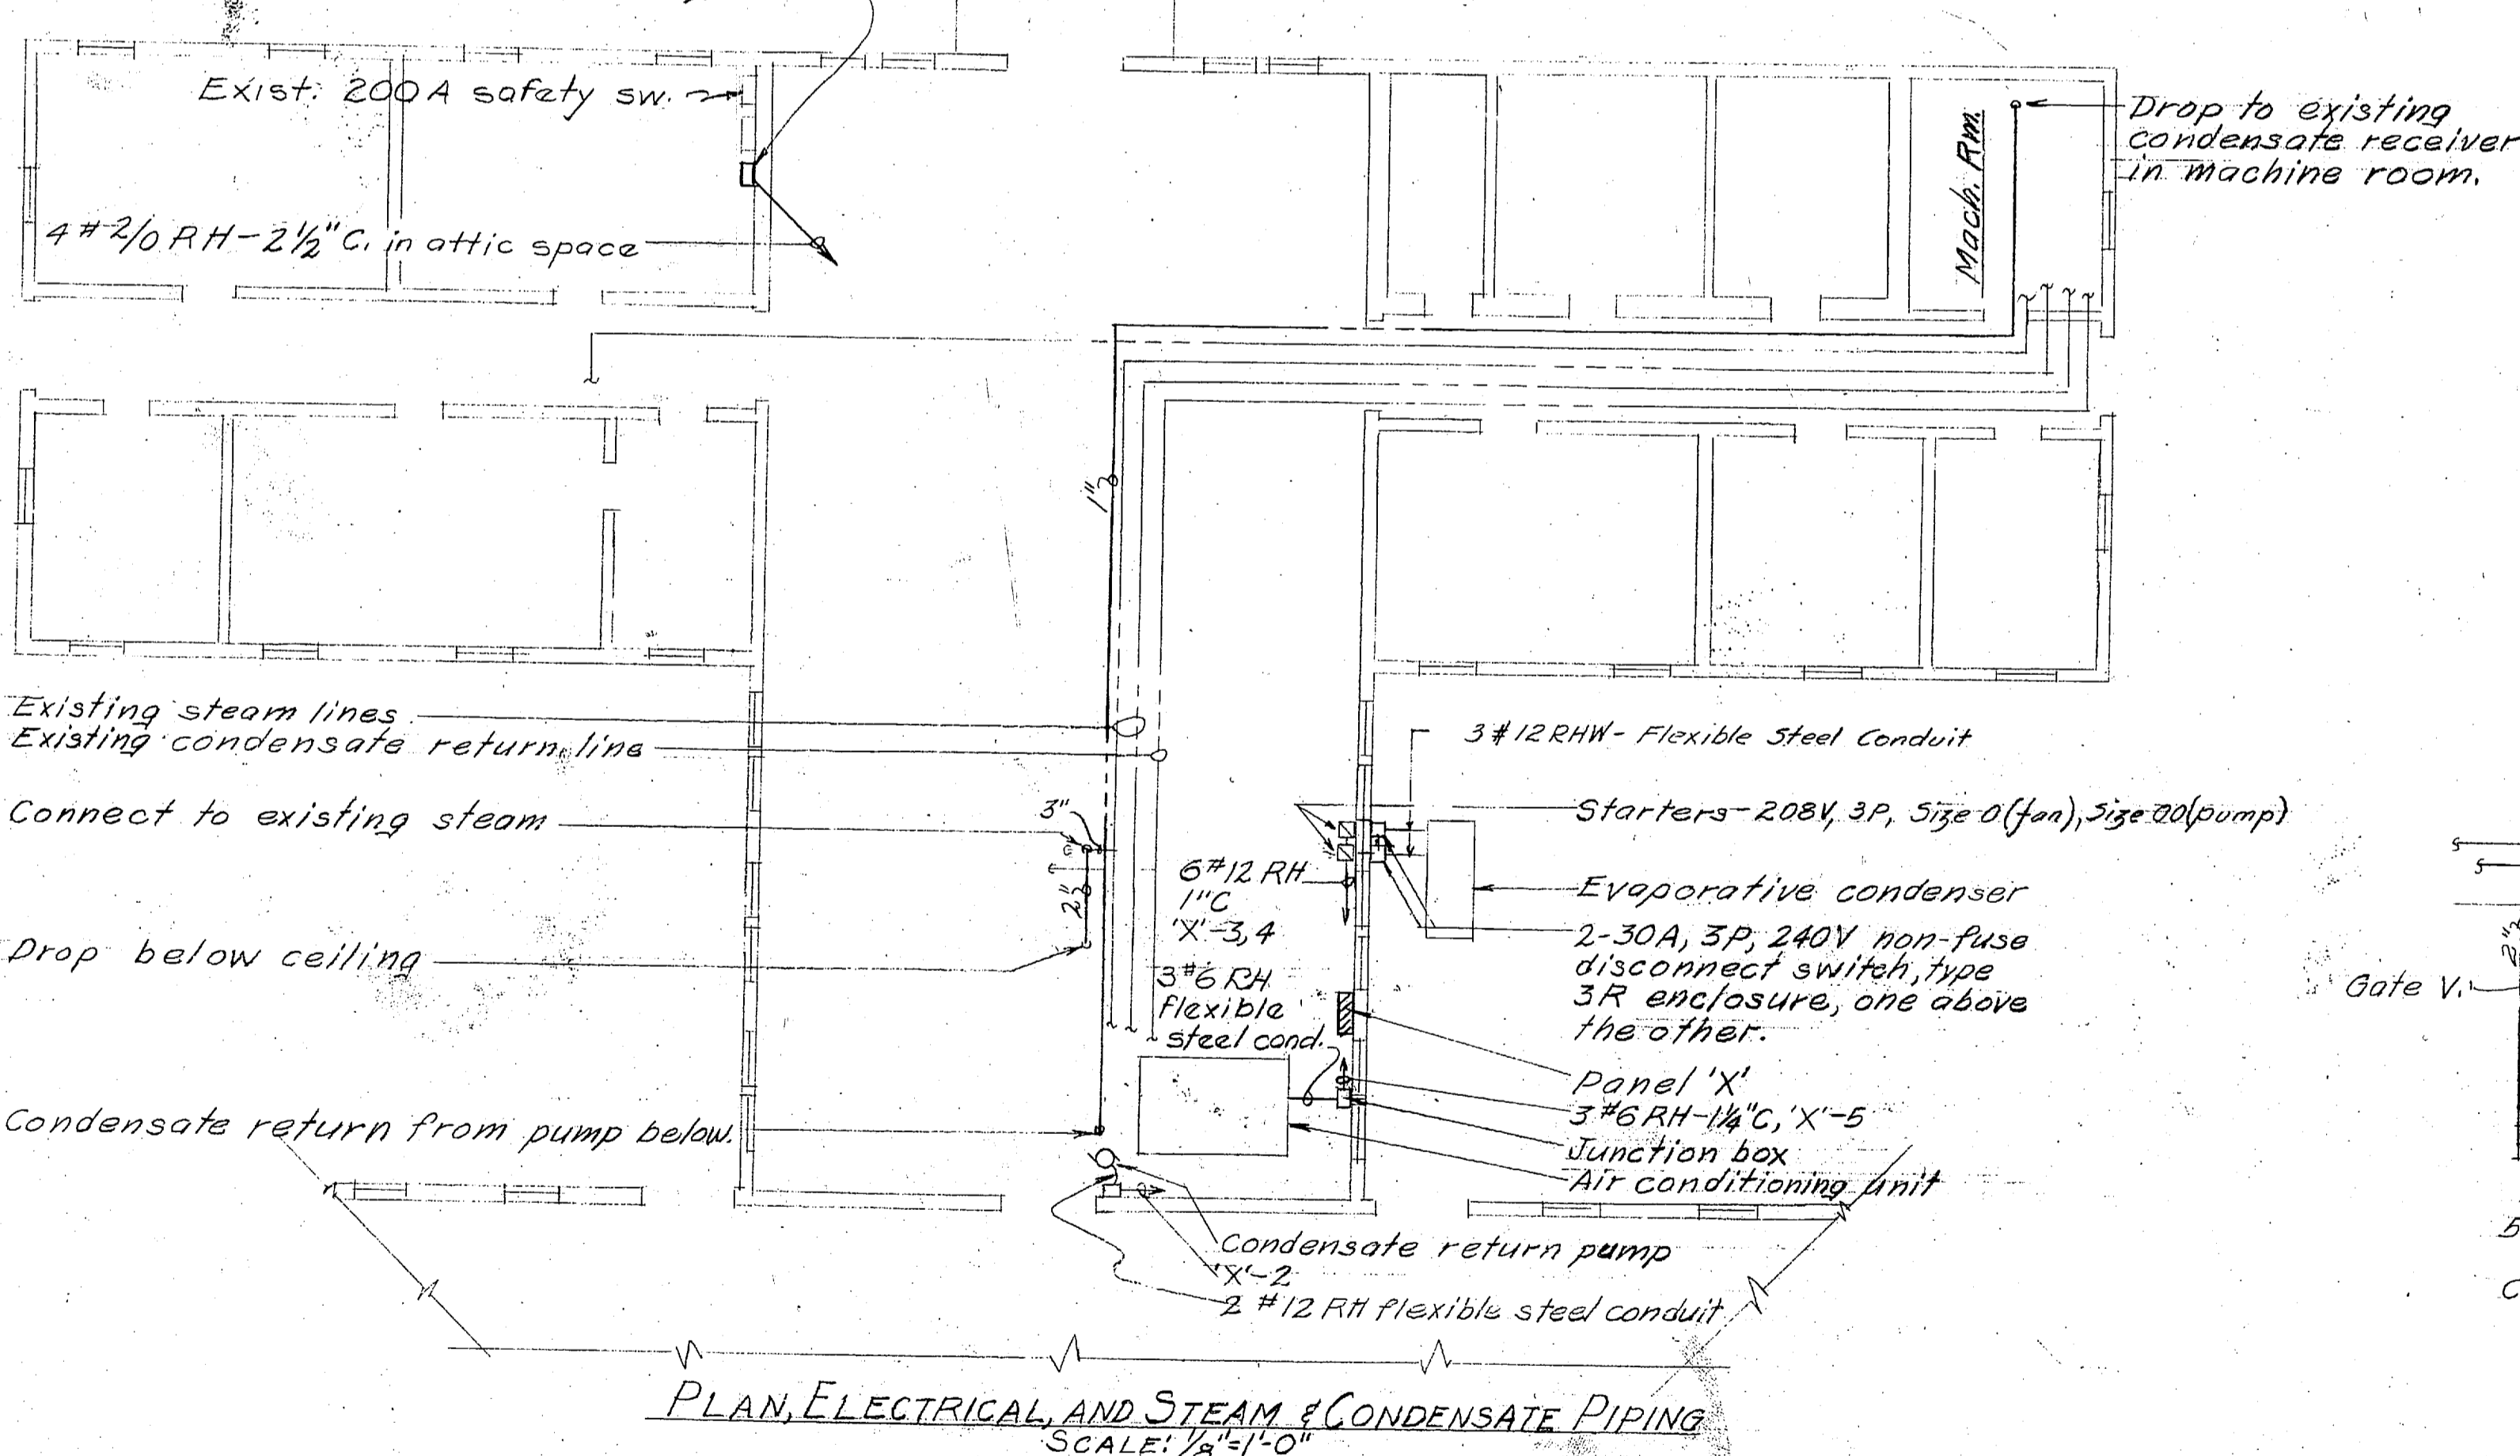 Exist. 200A safety sw.
4 #2/0 RH-2½"C. in attic space
Mach. Rm.
Drop to existing
condensate receiver
in machine room.
1"
Existing steam lines
Existing condensate return line
Connect to existing steam
3"
Drop below ceiling
Condensate return from pump below.
6#12 RH
1"C
'X'-3,4
3#6 RH
flexible
steel cond.
3 #12 RHW- Flexible Steel Conduit
Starters-208V, 3P, Size 0 (fan), Size 00 (pump)
Evaporative condenser
2-30A, 3P, 240V non-fuse
disconnect switch, type
3R enclosure, one above
the other.
Panel 'X'
3 #6 RH-1¼"C, 'X'-5
Junction box
Air conditioning unit
Condensate return pump
'X'-2
2 #12 RH flexible steel conduit
Gate V.
2"
PLAN, ELECTRICAL, AND STEAM & CONDENSATE PIPING
SCALE: 1/8"=1'-0"